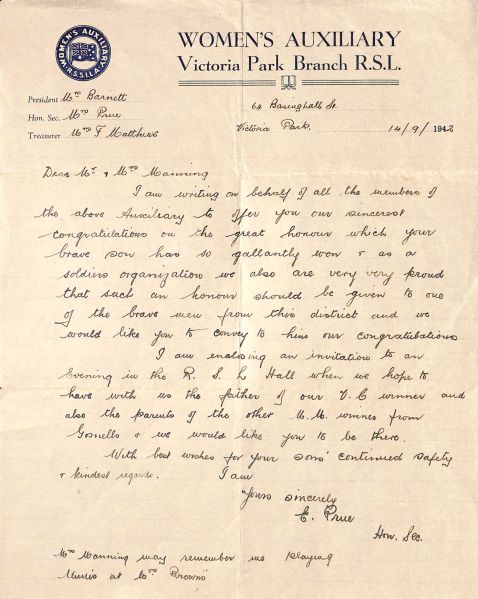 WOMEN'S AUXILIARY
R.S.S.I.L.A.
WOMEN'S AUXILIARY
Victoria Park Branch R.S.L.
President Mrs Barnett
Hon. Sec. Mrs Prue
Treasurer Mrs F Matthews
64 Basinghall St.
Victoria Park. 14/9/1942
Dear Mr & Mrs Manning
I am writing on behalf of all the members of
the above Auxiliary to offer you our sincerest
congratulations on the great honour which your
brave son has so gallantly won & as a
soldiers organization we also are very very proud
that such an honour should be given to one
of the brave men from this district and we
would like you to convey to him our congratulations
I am enclosing an invitation to an
Evening in the R. S. L Hall when we hope to
have with us the father of our V.C winner and
also the parents of the other M.M. winner from
Gosnells & we would like you to be there.
With best wishes for your sons' continued safety
& kindest regards. I am
Yours sincerely
E. Prue
Hon. Sec.
Mrs Manning may remember me playing
at Mrs Browns